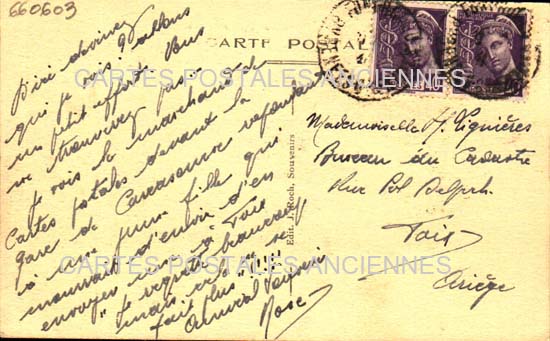 660603
CARTE POSTALE
CARTES POSTALES ANCIENNES
Si devinez
qui je vois? allons
un petit effort. Vous
ne trouvez pas
Je vois la marchande de
Cartes postales devant la
gare de Carcassonne répondant
à une jeune fille qui
mourrait d'envie d'en
envoyer une à Foix
"Je regrette beaucoup
mais cela ne se
fait plus"!!!
Amical
Rose
Edit. J. Roch, Souvenirs
Mademoiselle Vignières
Bureau du Cadastre
Rue Pol Delpech
Foix
Ariège
CARTES POSTALES ANCIENNES